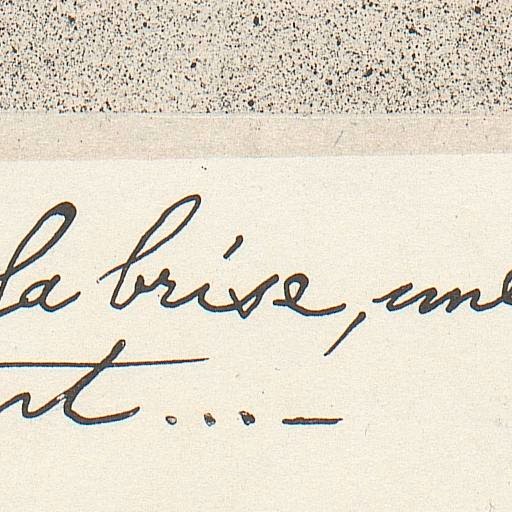 la brise, une
nt...._